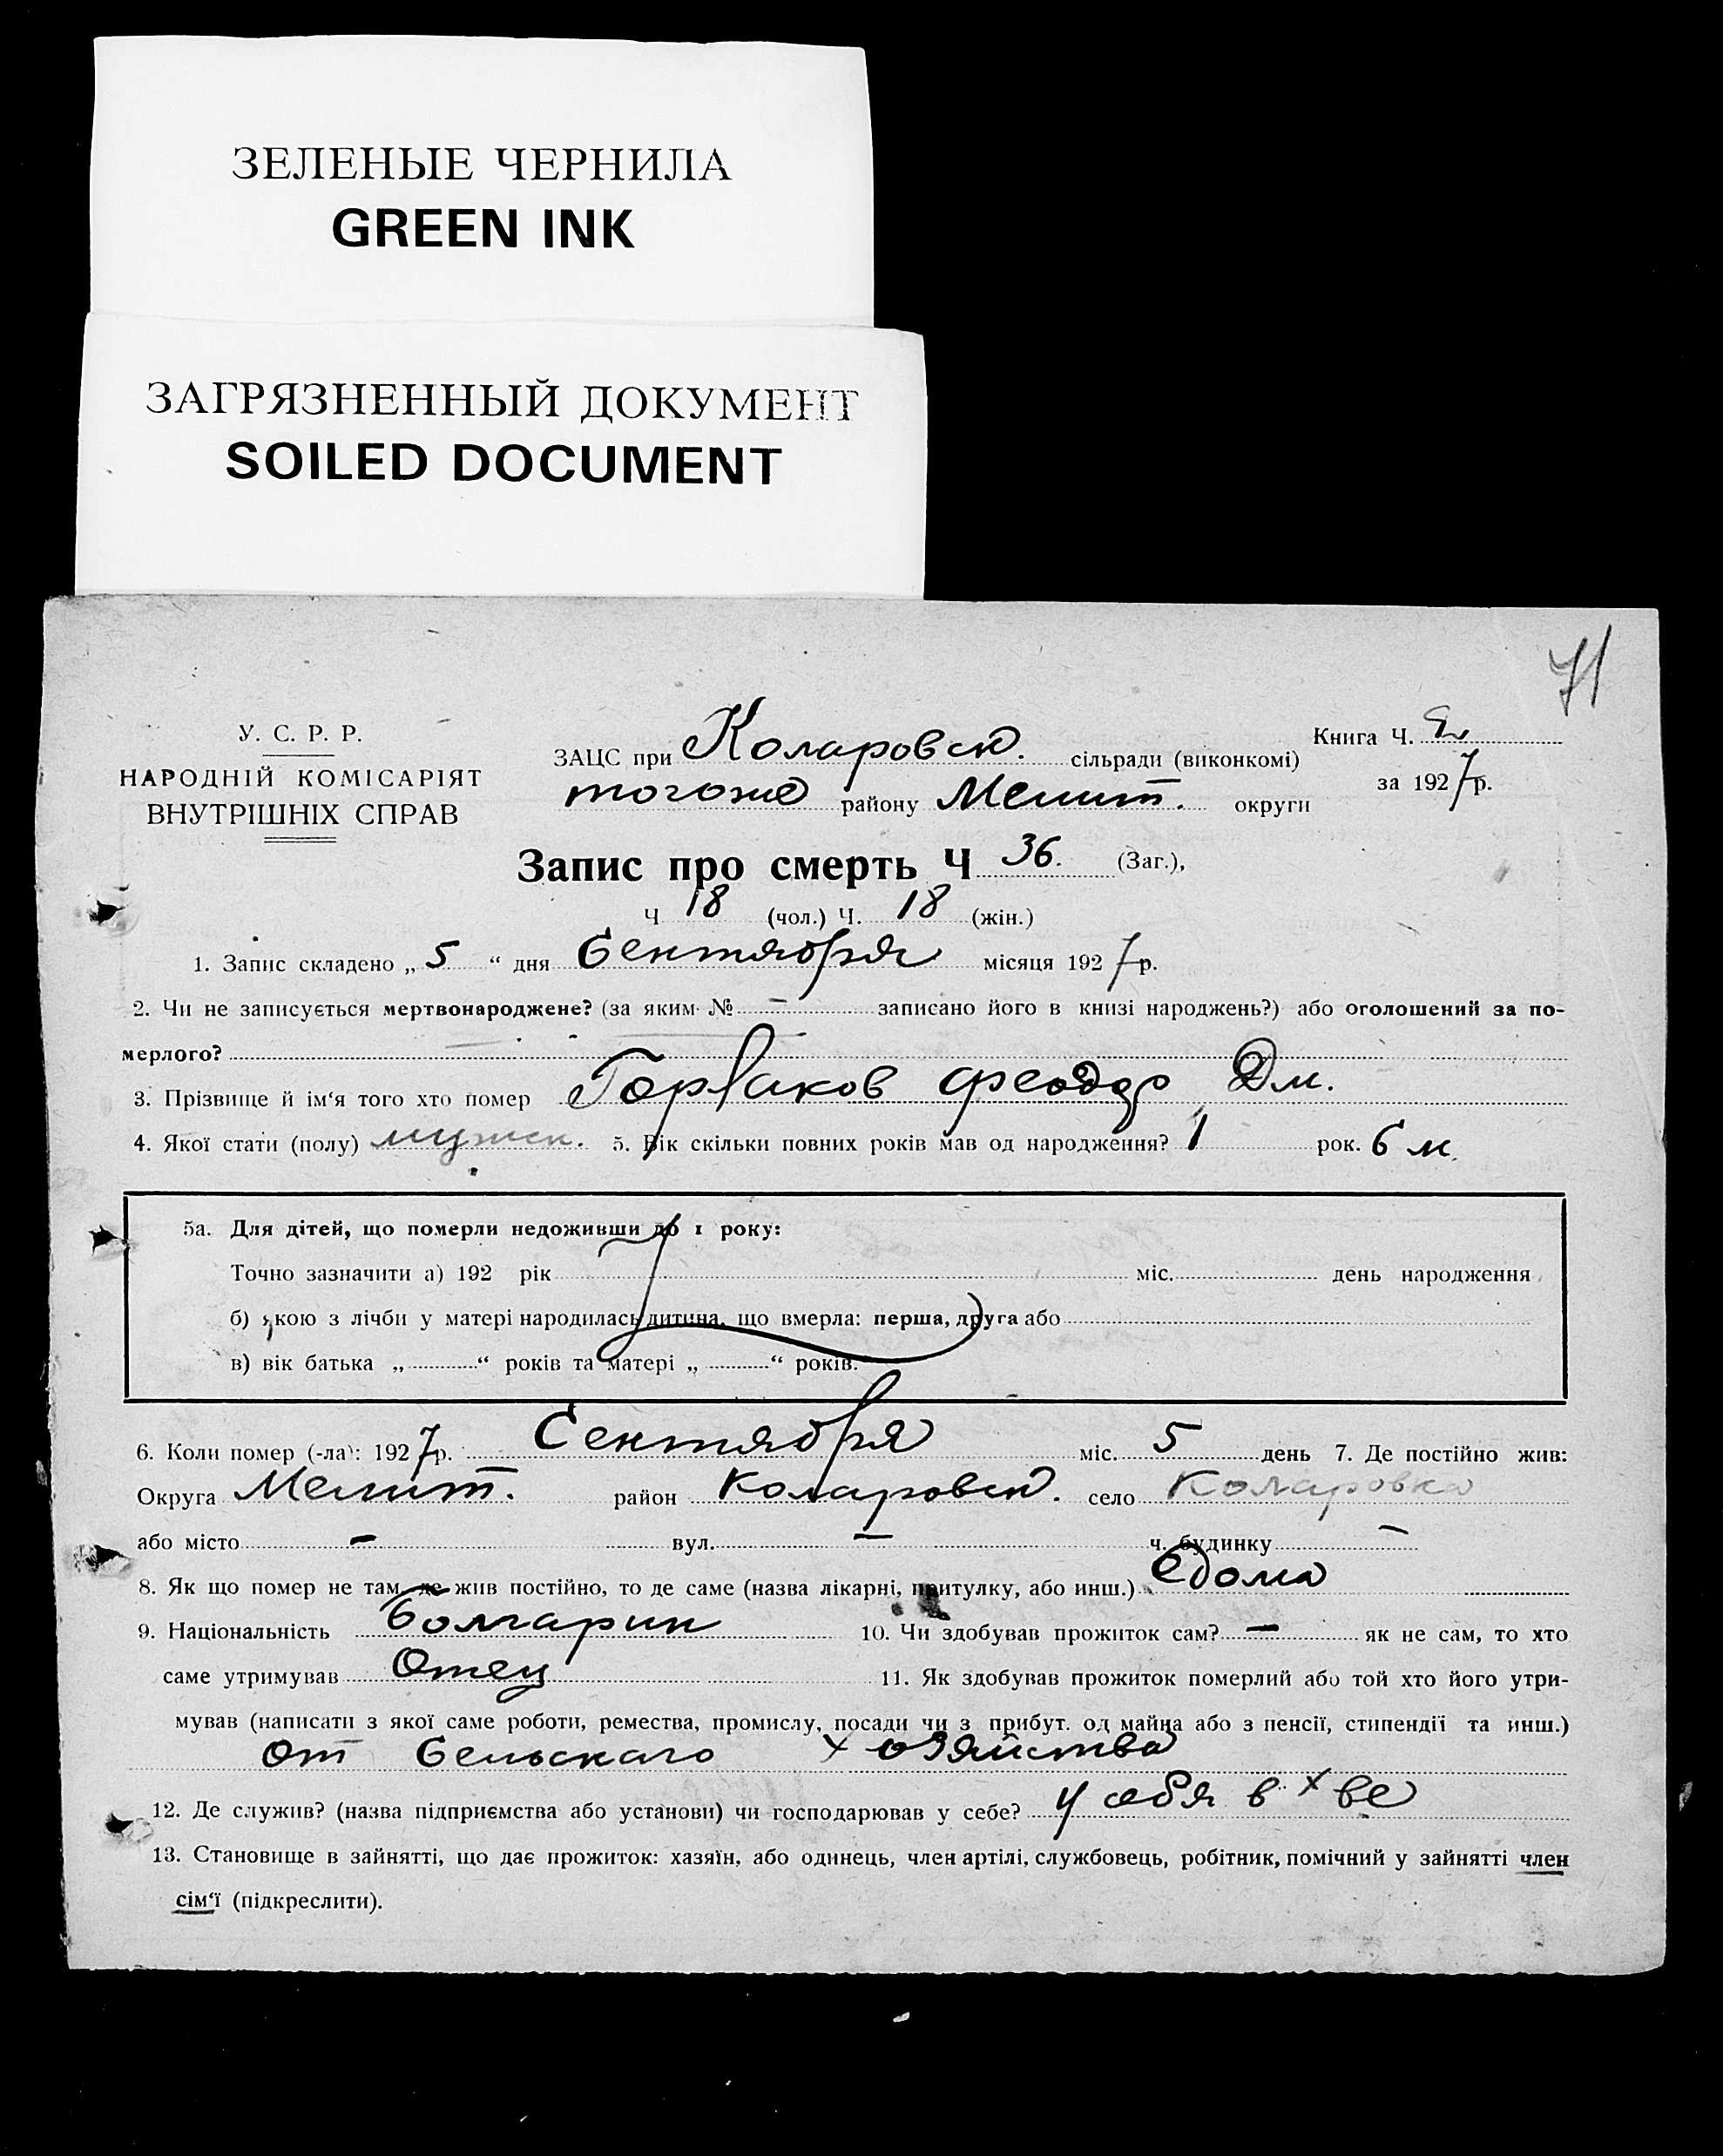 ЗЕЛЕНЫЕ ЧЕРНИЛА
GREEN INK
ЗАГРЯЗНЕННЫЙ ДОКУМЕНТ
SOILED DOCUMENT
71
У. С. Р. Р.
НАРОДНІЙ КОМІСАРІЯТ
ВНУТРІШНІХ СПРАВ
ЗАЦС при Коларовск. сільради (виконкомі)
тогоже району Мелит. округи
Книга Ч.
за 1927 р.
Запис про смерть Ч 36. (Заг.),
Ч 18 (чол.) Ч. 18 (жін.)
1. Запис складено „ 5 “ дня Сентября місяця 1927 р.
2. Чи не записується мертвонароджене? (за яким № — записано його в книзі народжень?) або оголошений за по-
мерлого?
3. Прізвище й ім‘я того хто помер Горбаков Феодор Дм.
4. Якої стати (полу) мужск. 5. Вік скільки повних років мав од народження? 1 рок. 6 м.
5а. Для дітей, що померли недоживши до 1 року:
Точно зазначити а) 192 рік міс. день народження
б) якою з лічби у матері народилась дитина, що вмерла: перша, друга або
в) вік батька „ “ років та матері „ “ років.
6. Коли помер (-ла): 1927 р. Сентября міс. 5 день 7. Де постійно жив:
Округа Мелит. район Коларовск. село Коларовка
або місто — вул. — ч. будинку —
8. Як що помер не там, де жив постійно, то де саме (назва лікарні, притулку, або инш.) дома
9. Національність Болгарин 10. Чи здобував прожиток сам? — як не сам, то хто
саме утримував Отец 11. Як здобував прожиток померлий або той хто його утри-
мував (написати з якої саме роботи, ремества, промислу, посади чи з прибут. од майна або з пенсії, стипендії та инш.)
От Сельскаго хозяйства
12. Де служив? (назва підприємства або установи) чи господарював у себе? у себя в х ве
13. Становище в зайнятті, що дає прожиток: хазяїн, або одинець, член артілі, службовець, робітник, помічний у зайнятті член
сім‘ї (підкреслити).